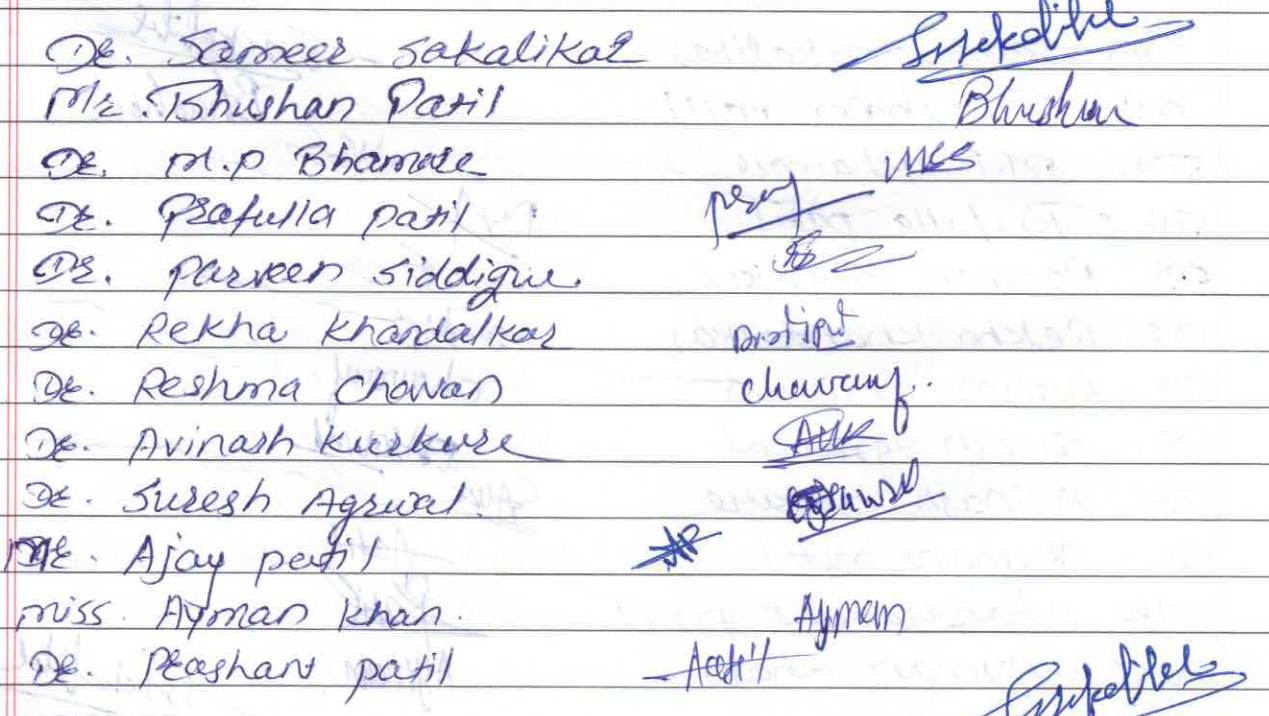 Dr. Sameer Sakalikar
Mr. Bhushan Patil Bhushan
Dr. M.P Bhamare
Dr. Prafulla patil
Dr. Parveen Siddiqui
Dr. Rekha Khandalkar
Dr. Reshma Chavan Chavan
Dr. Avinash Kurkure
Dr. Suresh Agrwal.
Mr. Ajay patil AP
miss. Ayman Khan. Ayman
Dr. Prashant patil